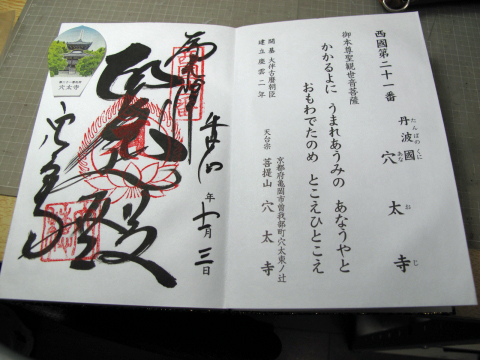 西國第二十一番
丹波國 穴太寺
たんばのくに あな お じ
御本尊聖観世音菩薩
かかるよに うまれあうみの あなうやと
おもわでたのめ とこえひとこえ
開基 大伴古麿朝臣
建立 慶雲二年
京都府亀岡市曽我部町穴太東ノ辻
天台宗 菩提山 穴太寺
奉拝
年
十一月三日
穴太寺